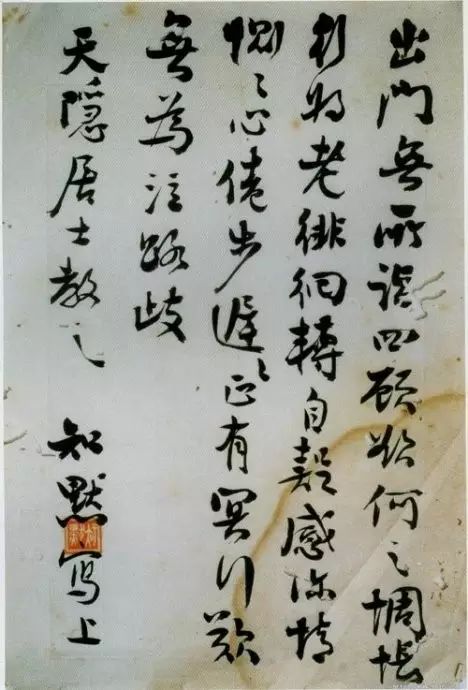 出門無所詣四顧欲何之惆悵
行將老徘徊轉自疑感深情
惻〻心倦步遲〻正有冥行歎
無為泣路歧
天隱居士教之 知默寫上